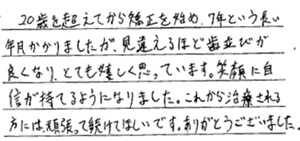 20歳を超えてから矯正を始め、7年という長い
年月かかりましたが、見違えるほど歯並びが
良くなり、とても嬉しく思っています。笑顔に自
信が持てるようになりました。これから治療される
方には、頑張って続けてほしいです。ありがとうございました。